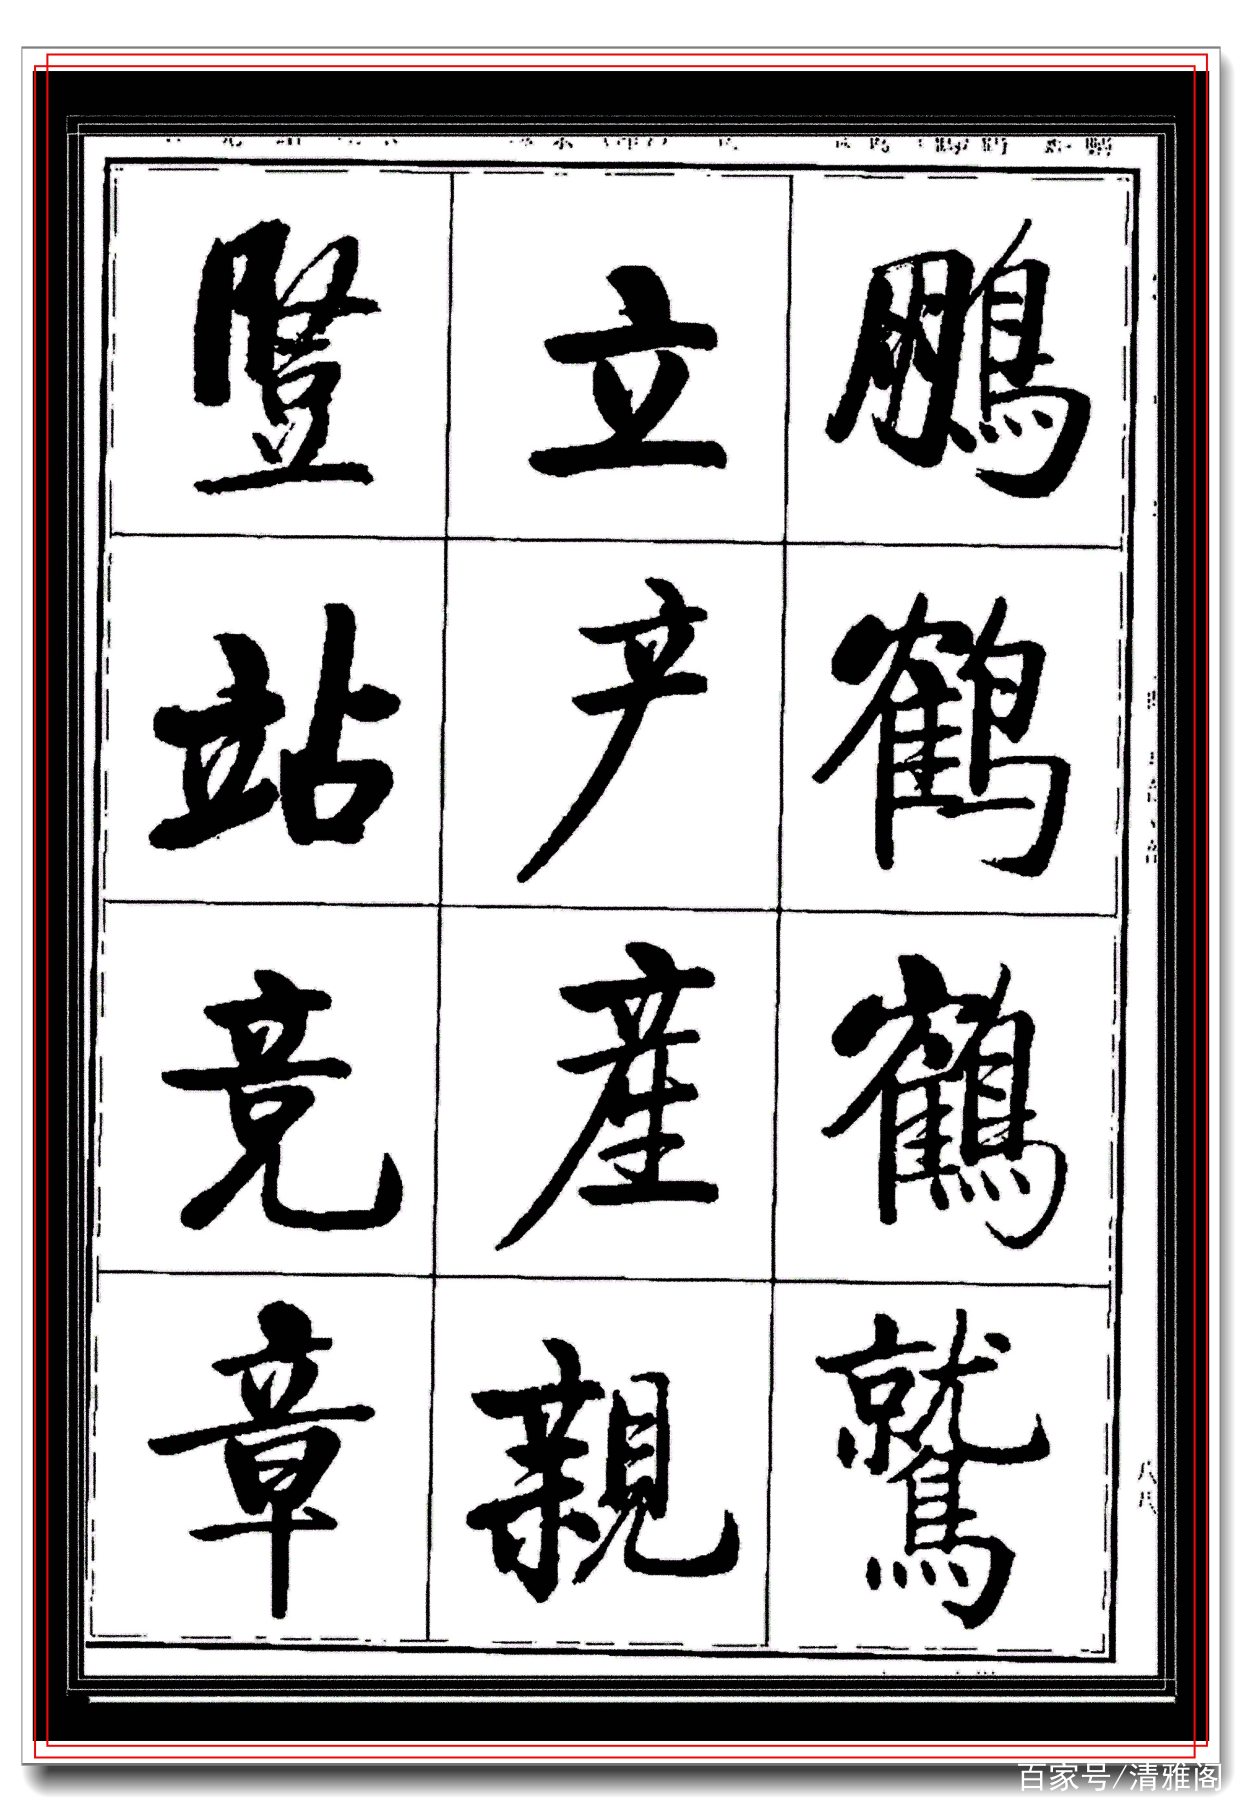 鵬
鹤
鶴
鷲
立
产
産
親
豎
站
竞
章
八八
百家号/清雅阁